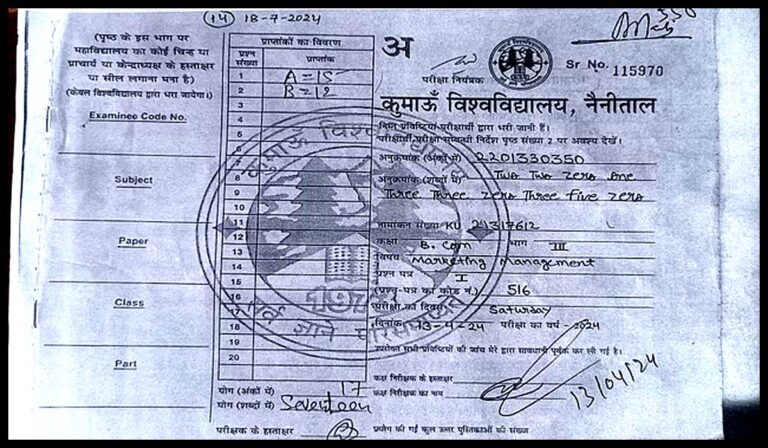 (14) 18-7-2024
(पृष्ठ के इस भाग पर
महाविद्यालय का कोई चिन्ह या
प्राचार्य या केन्द्राध्यक्ष के हस्ताक्षर
या सील लगाना मना है)
(केवल विश्वविद्यालय द्वारा भरा जायेगा।)
Examinee Code No.
Subject
Paper
Class
Part
प्राप्तांकों का विवरण
प्रश्न संख्या
प्राप्तांक
1 A = 15
2 B = 12
3
4
5
6
7
8
9
10
11
12
13
14
15
16
17
18
19
20
योग (अंकों में) 17
योग (शब्दों में) Seventeen
परीक्षक के हस्ताक्षर
अ
परीक्षा नियंत्रक
Sr No. 115970
कुमाऊँ विश्वविद्यालय, नैनीताल
निम्न प्रविष्टियाँ परीक्षार्थी द्वारा भरी जानी हैं।
परीक्षार्थी परीक्षा सम्बन्धी निर्देश पृष्ठ संख्या 2 पर अवश्य देखें।
अनुक्रमांक (अंकों में) 2201330350
अनुक्रमांक (शब्दों में) Two Two zero one
Three Three zero Three five zero
नामांकन संख्या KU 21317612
कक्षा B. Com भाग III
विषय Marketing Managment
प्रश्न पत्र I
(प्रश्न-पत्र का कोड नं.) 516
परीक्षा का दिवस Saturday
दिनांक 13-4-24 परीक्षा का वर्ष - 2024
उपरोक्त सभी प्रविष्टियों की जांच मेरे द्वारा सावधानी पूर्वक कर ली गई है।
कक्ष निरीक्षक के हस्ताक्षर
कक्ष निरीक्षक का नाम
13/04/24
प्रयोग की गई कुल उत्तर पुस्तिकाओं की संख्या